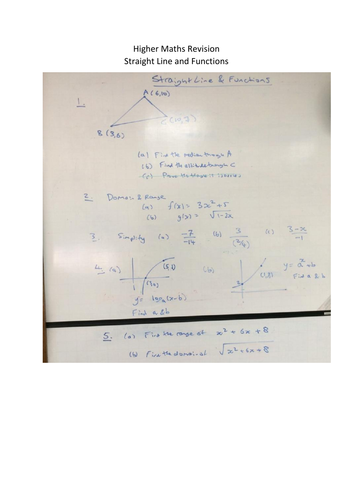 Higher Maths Revision
Straight Line and Functions
Straight Line & Functions
1.
A
B
C
(a) Find the median through A
(b) Find the altitude through C
(c) Prove the triangle is isosceles
2. Domain & Range
(a) f(x) = 3x² + 5
(b) g(x) = √1-2x
3. Simplify (a) -7/-14 (b) 3/(3/4) (c) 3-x/-1
4. (a) (b)
y = aˣ + b
Find a & b
Find a & b
5. (a) Find the range of x² + 6x + 8
(b) Find the domain of √x² + 6x + 8